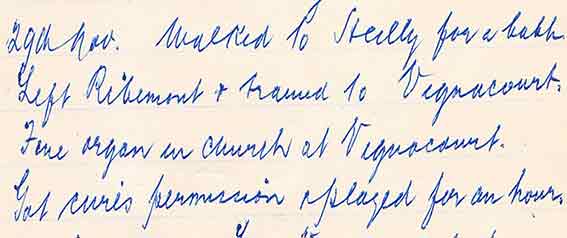 29th Nov. Walked to Heilly for a bath.
Left Ribemont & trained to Vignacourt.
Fine organ in church at Vignacourt.
Got curés permission & played for an hour.